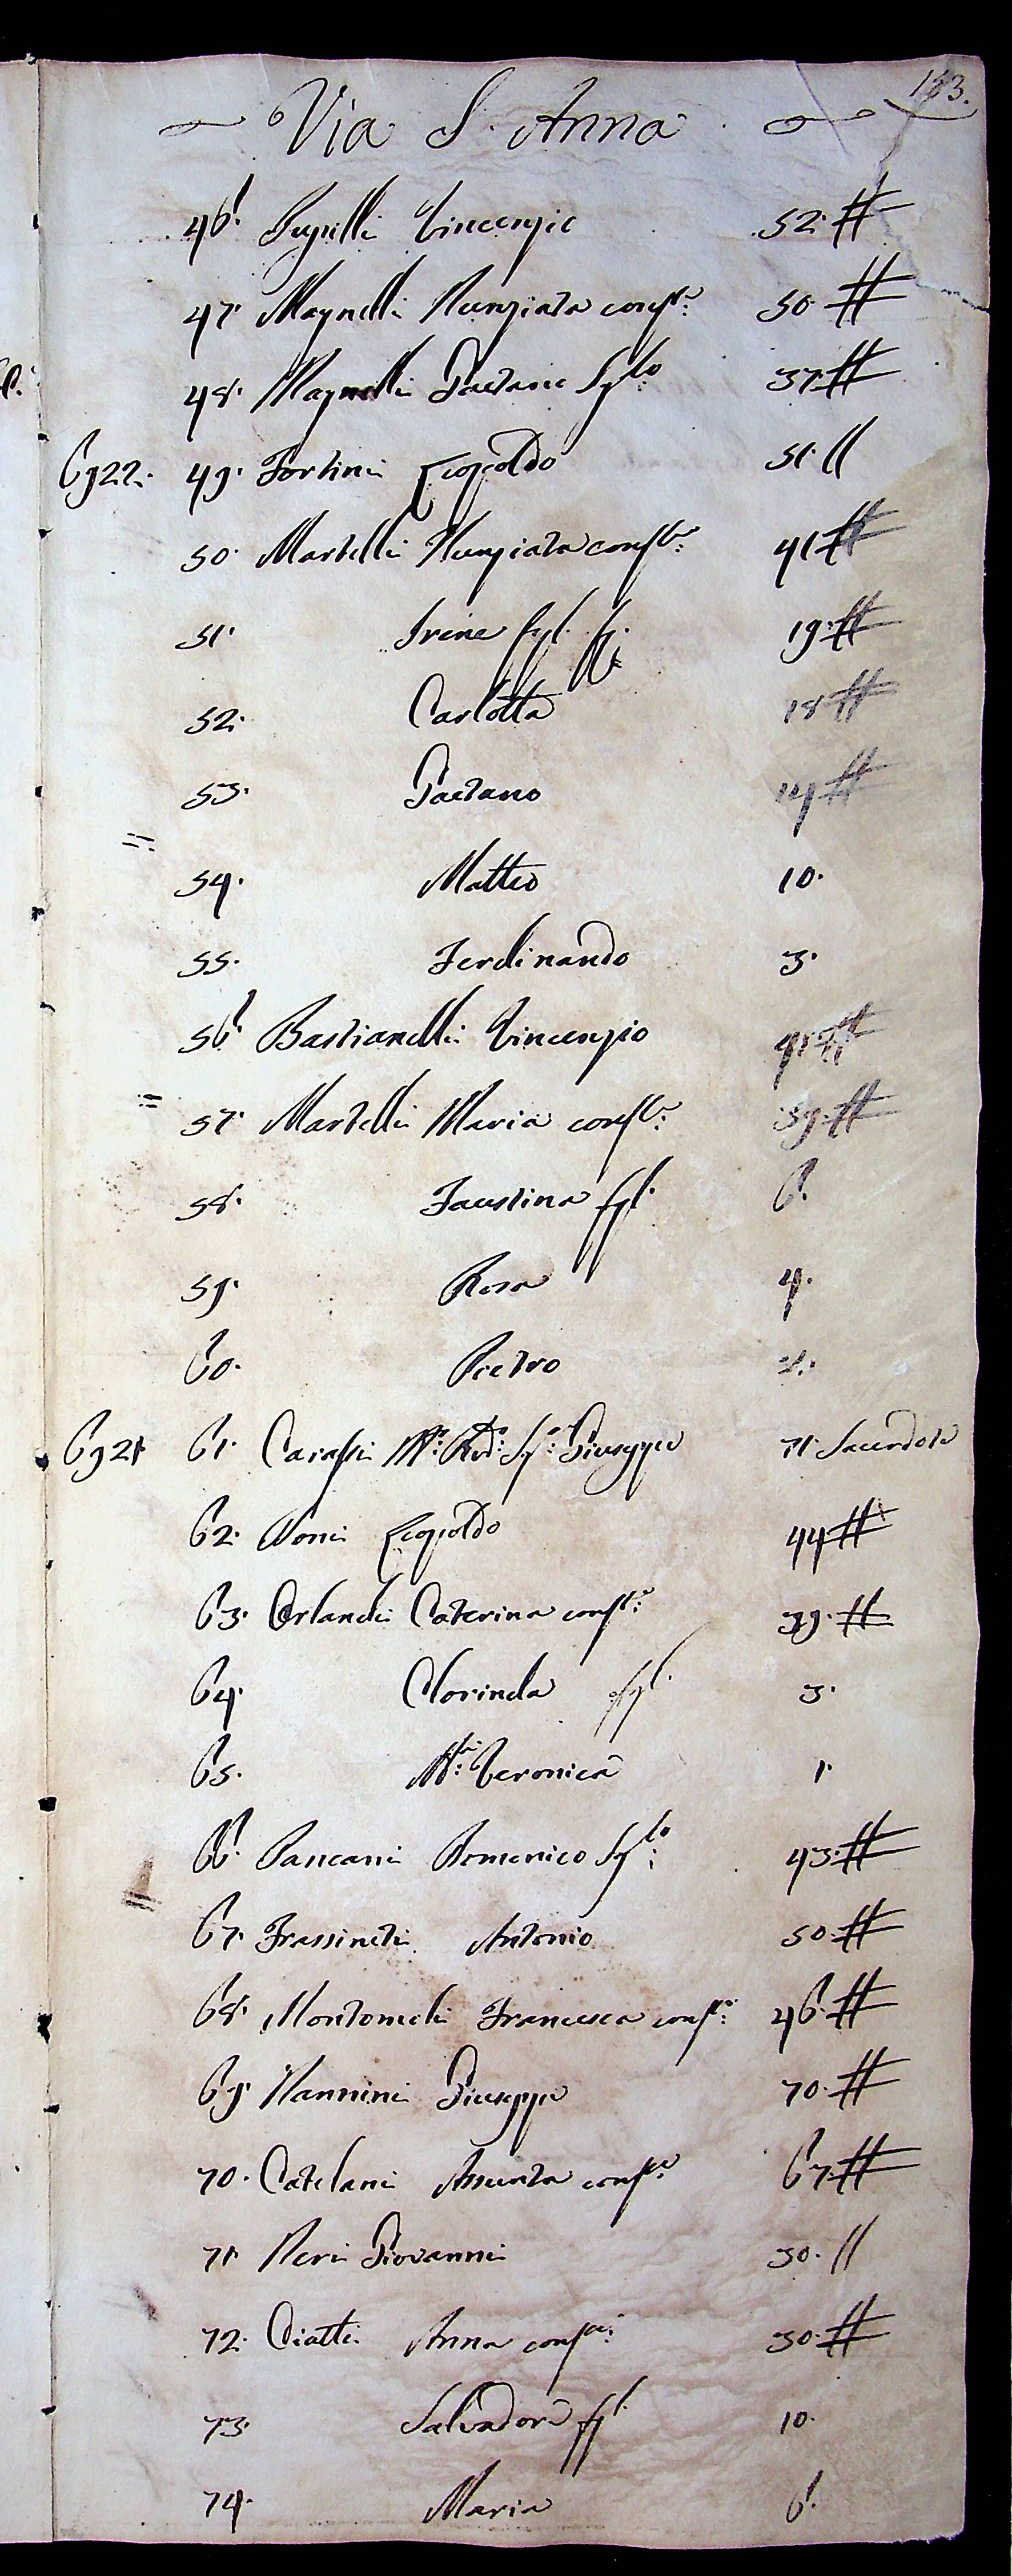 183.
Via S. Anna
46. Pupilli Vincenzio 52. #
47. Magnelli Nunziata conste: 50 #
48. Magnelli Gaetano Sglo: 37 #
6922. 49. Fortini Leopoldo 51. //
50. Martelli Nunziata conste: 41 #
51. Irene figl. 19. #
52. Carlotta 18 #
53. Gaetano 14 #
54. Matteo 10.
55. Ferdinando 3.
56. Bastianelli Vincenzio #
57. Martelli Maria conste: 39. #
58. Faustina figl. 6.
59. Rosa 4.
60. Pietro 2.
6921 61. Carassi M: Rdo: Sr: Giuseppe 71 Sacerdote
62. Noni Leopoldo 44 #
63. Orlandi Caterina conste: 39. #
64. Clorinda figl. 3.
65. Ma: Veronica 1.
66. Pancani Domenico Sglo: 43. #
67. Frassineti Antonio 50. #
68. Montomoli Francesca conste: 46. #
69. Nannini Giuseppe 70. #
70. Catelani Assunta conste 67. #
71. Neri Giovanni 30. //
72. Ciatti Anna conste: 30. #
73. Salvadore figl. 10.
74. Maria 6.